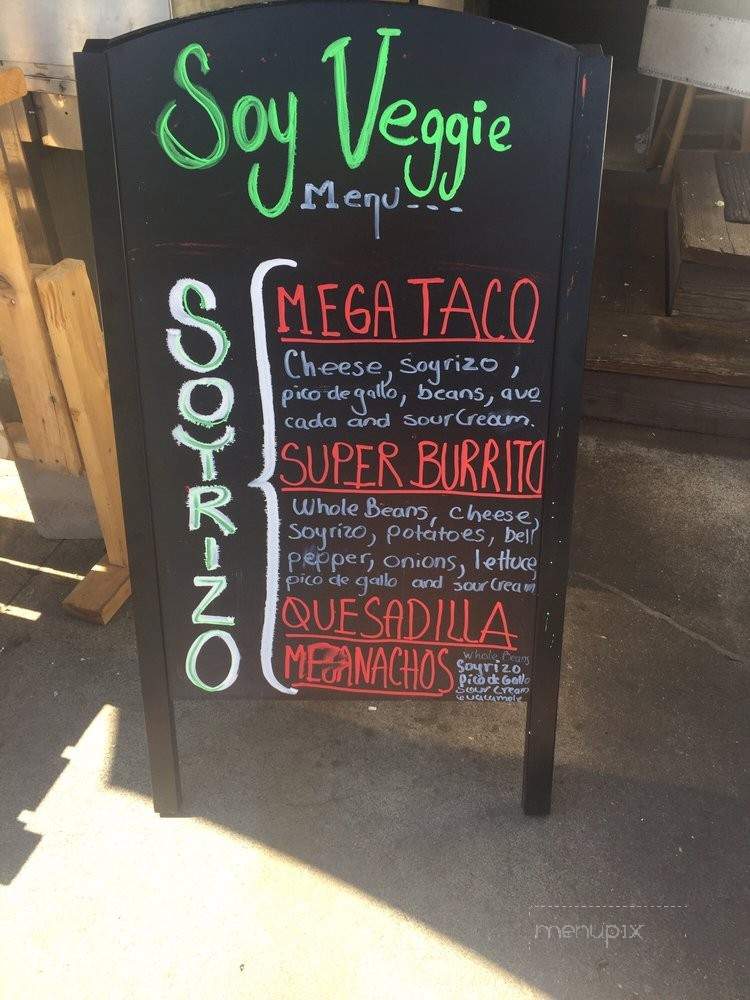 Soy Veggie
Menu---
SOYRIZO
MEGA TACO
Cheese, soyrizo,
pico de gallo, beans, avo
cada and sour Cream.
SUPER BURRITO
Whole Beans, cheese,
soyrizo, potatoes, bell
pepper, onions, lettuce
pico de gallo and sour cream
QUESADILLA
MEGA NACHOS
Whole Beans
Soyrizo
Pico de Gallo
Sour Cream
Guacamole
menupix